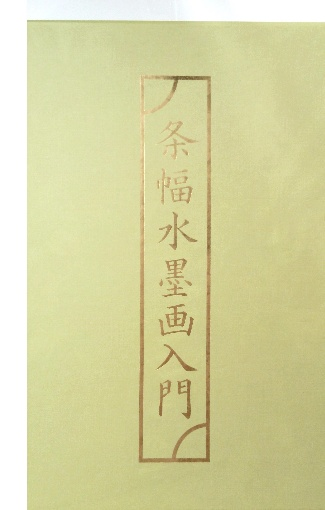 条幅水墨画入門